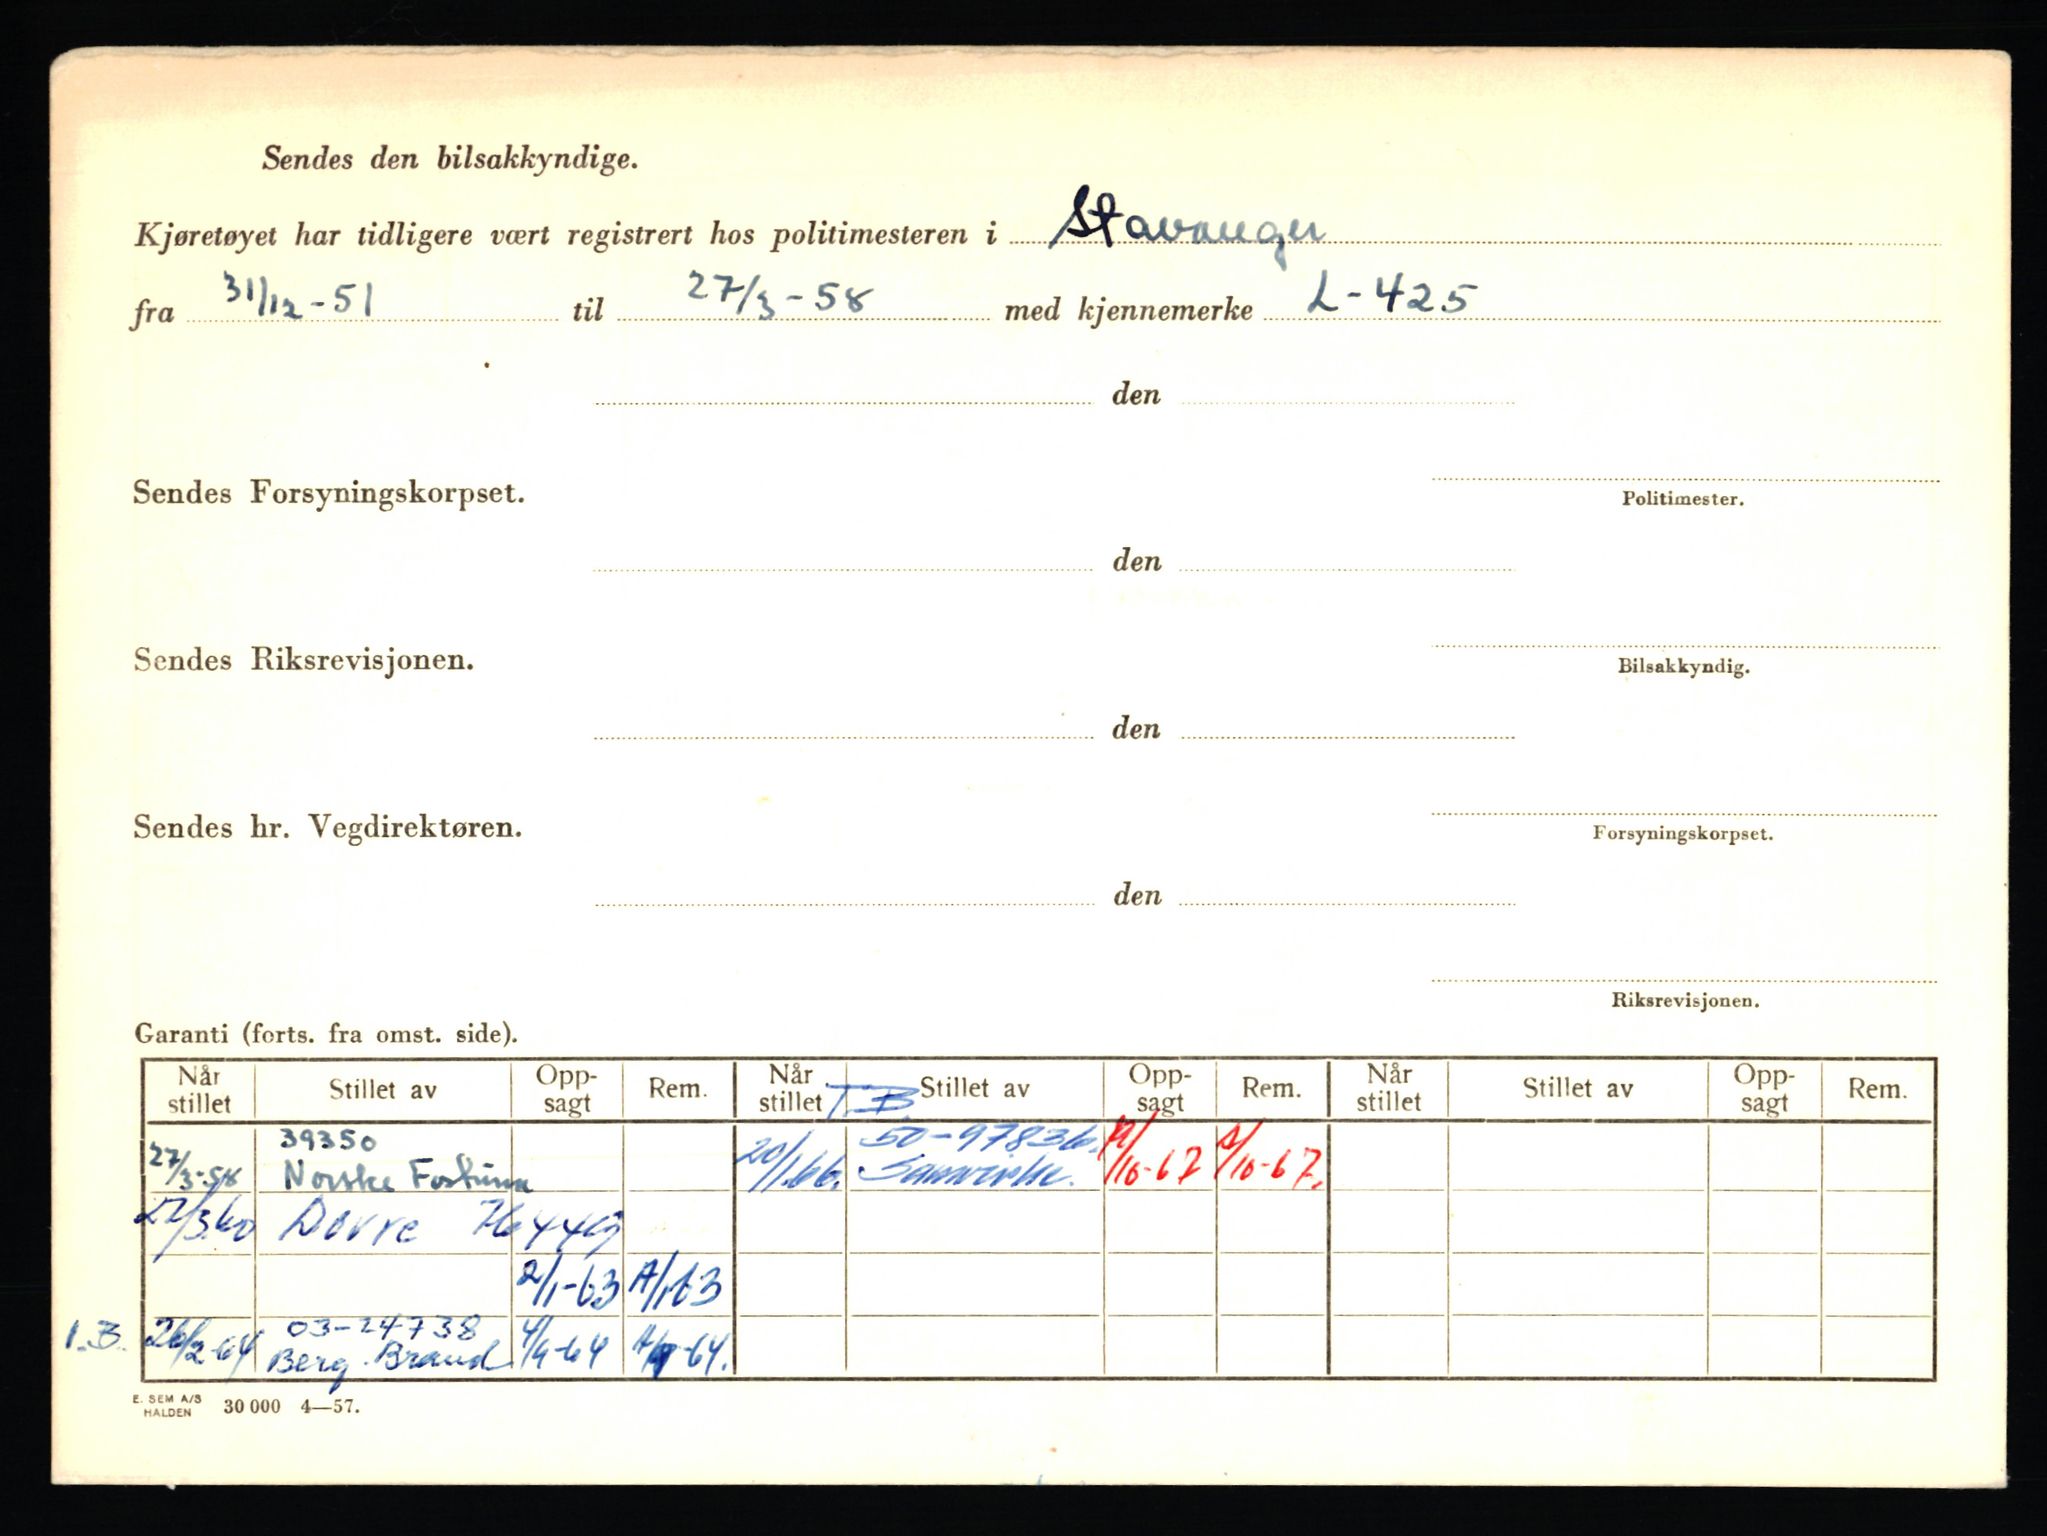 Sendes den bilsakkyndige.
Kjøretøyet har tidligere vært registrert hos politimesteren i Stavanger
fra 31/12-51 til 27/3-58 med kjennemerke L-425
den
Sendes Forsyningskorpset.
Politimester.
den
Sendes Riksrevisjonen.
Bilsakkyndig.
den
Sendes hr. Vegdirektøren.
Forsyningskorpset.
den
Riksrevisjonen.
Garanti (forts. fra omst. side).
Når stillet Stillet av Opp-sagt Rem. Når stillet Stillet av Opp-sagt Rem. Når stillet Stillet av Opp-sagt Rem.
T.B
39350 50-97836
27/3-58 Norske Fortuna 20/1.66. Samvirke. /10-67 /10-67.
27/3.60 Dovre
2/1-63 A/1.63
03-24738
1.B. 26/2-64 Berg. Brand 4/9-64 -64.
E. SEM A/S
HALDEN 30 000 4—57.